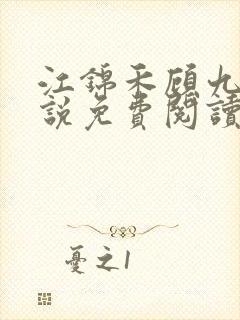 江錦禾顧九
說免費閱讀
憂之1